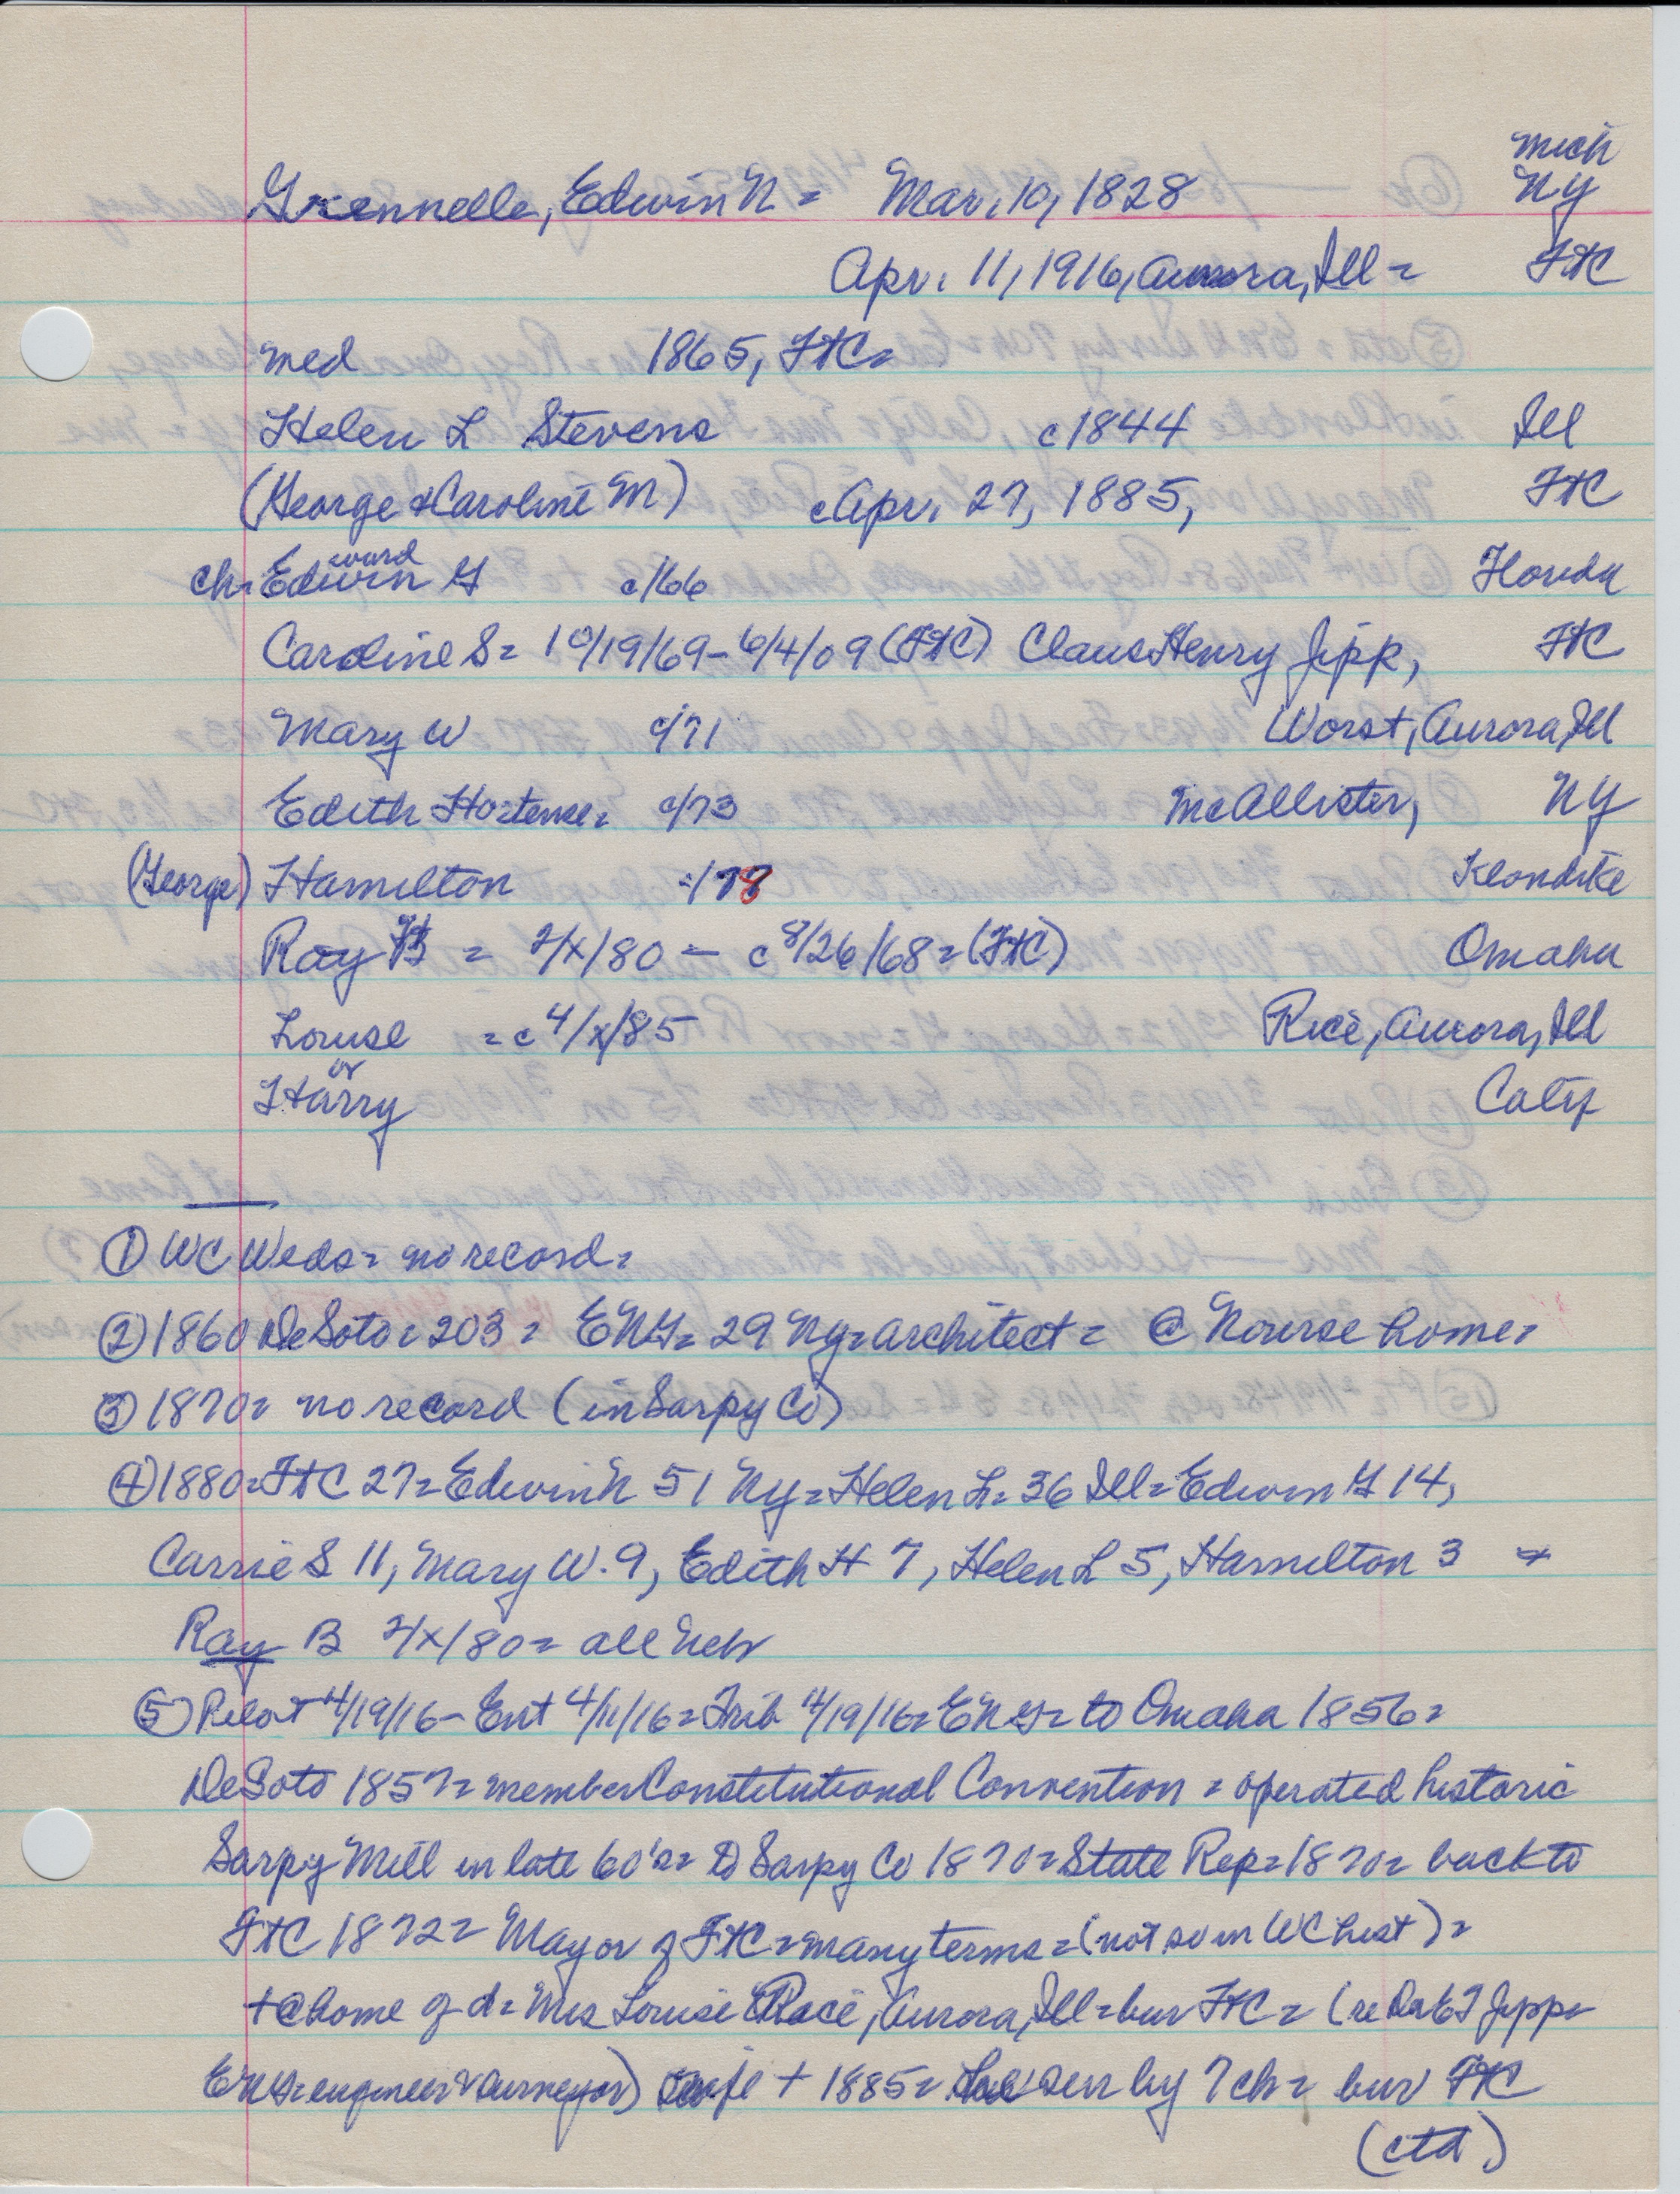 Mich
Grennelle, Edwin N = Mar. 10, 1828 NY
Apr. 11, 1916, Aurora, Ill = FtC
med 1865, FtC=
Helen L Stevens c1844 Ill
(George & Caroline M) cApr. 27, 1885, FtC
ward
ch= Edwin G c/66 Florida
Caroline S= 10/19/69-6/4/09 (FtC) Claus Henry Jipp, FtC
Mary W c/71 Worst, Aurora, Ill
Edith Hortense= c/73 McAllister, NY
(George) Hamilton c/78 Klondike
Ray H = 2/x/80 - c8/26/68=(FtC) Omaha
Louise = c4/x/85 Rice, Aurora, Ill
or
Harry Calif
① WC Weds= no record=
② 1860 DeSoto= 203= ENG= 29 NY=architect= @ Nourse home=
③ 1870= no record (in Sarpy Co)
④ 1880=FtC 27=Edwin N 51 NY=Helen L=36 Ill=Edwin G 14,
Carrie S 11, Mary W. 9, Edith H 7, Helen L 5, Hamilton 3 +
Ray B 2/x/80= all Neb
⑤ Pilot 4/19/16- Ent 4/11/16=Trib 4/19/16=ENG=to Omaha 1856=
DeSoto 1857=member Constitutional Convention = operated historic
Sarpy Mill in late 60's= to Sarpy Co 1870=State Rep=1870= back to
FtC 1872= Mayor of FtC=many terms=(not so in WC hist)=
+@home of d= Mrs Louise Race, Aurora, Ill=bur FtC= (re Jipp=
ENG=engineer & surveyor) wife + 1885= sur by 7 ch= bur FtC
(ctd)